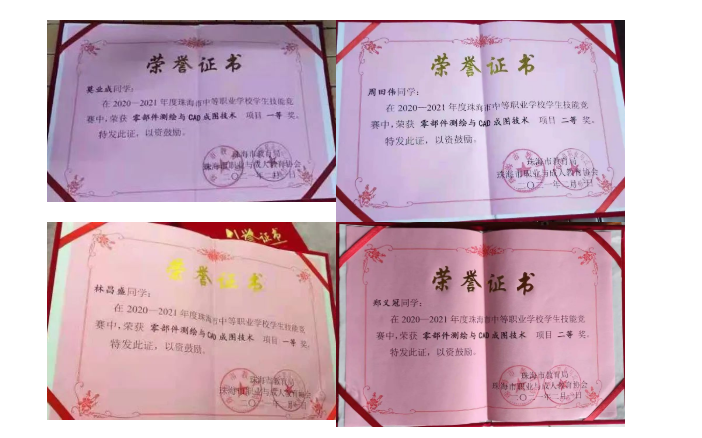 荣誉证书
莫业成同学:
在2020—2021年度珠海市中等职业学校学生技能竞
赛中,荣获 零部件测绘与CAD成图技术 项目 一等 奖。
特发此证,以资鼓励。
珠海市教育局
珠海市职业与成人教育协会
二〇二一年二月 日
荣誉证书
周田伟同学:
在2020—2021年度珠海市中等职业学校学生技能竞
赛中,荣获 零部件测绘与CAD成图技术 项目 二等 奖。
特发此证,以资鼓励。
珠海市教育局
珠海市职业与成人教育协会
二〇二一年二月 日
荣誉证书
荣誉证书
林昌盛同学:
在2020—2021年度珠海市中等职业学校学生技能竞
赛中,荣获 零部件测绘与CAD成图技术 项目 一等 奖。
特发此证,以资鼓励。
珠海市教育局
珠海市职业与成人教育协会
二〇二一年二月 日
荣誉证书
郑义冠同学:
在2020—2021年度珠海市中等职业学校学生技能竞
赛中,荣获 零部件测绘与CAD成图技术 项目 二等 奖。
特发此证,以资鼓励。
珠海市教育局
珠海市职业与成人教育协会
二〇二一年二月 日